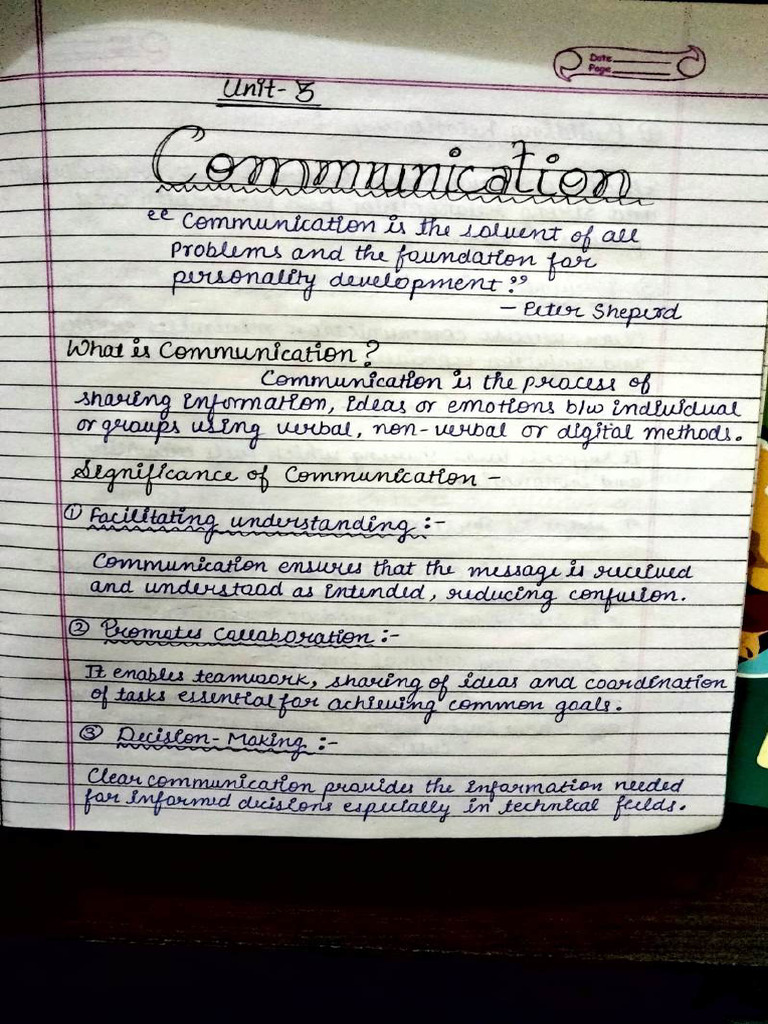 Date
Page
Unit- 3
Communication
"Communication is the solvent of all
problems and the foundation for
personality development."
- Peter Sheperd
What is Communication?
Communication is the process of
sharing information, ideas or emotions b/w individual
or groups using verbal, non-verbal or digital methods.
Significance of Communication -
① Facilitating understanding :-
Communication ensures that the message is received
and understood as intended, reducing confusion.
② Promotes Collaboration :-
It enables teamwork, sharing of ideas and coordination
of tasks essential for achieving common goals.
③ Decision-Making :-
Clear communication provides the information needed
for informed decisions especially in technical fields.